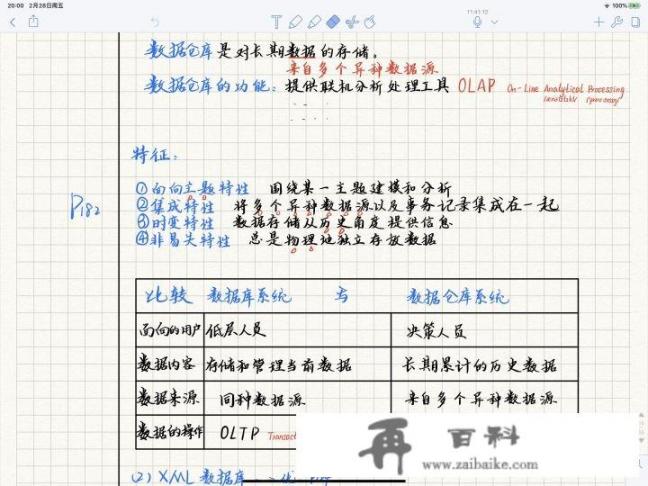 20:00 2月28日周五
100%
11:41:12
数据仓库是对长期数据的存储,
来自多个异种数据源
数据仓库的功能:提供联机分析处理工具 OLAP On-Line Analytical Processing
特征:
P182
①面向主题特性 围绕某一主题建模和分析
②集成特性 将多个异种数据源以及事务记录集成在一起
③时变特性 数据存储从历史角度提供信息
④非易失特性 总是物理地独立存放数据
比较 数据库系统 与 数据仓库系统
面向的用户 低层人员 决策人员
数据内容 存储和管理当前数据 长期累计的历史数据
数据来源 同种数据源 来自多个异种数据源
数据的操作 OLTP Transact
再百科
www.zaibaike.com
(2) XML 数据库